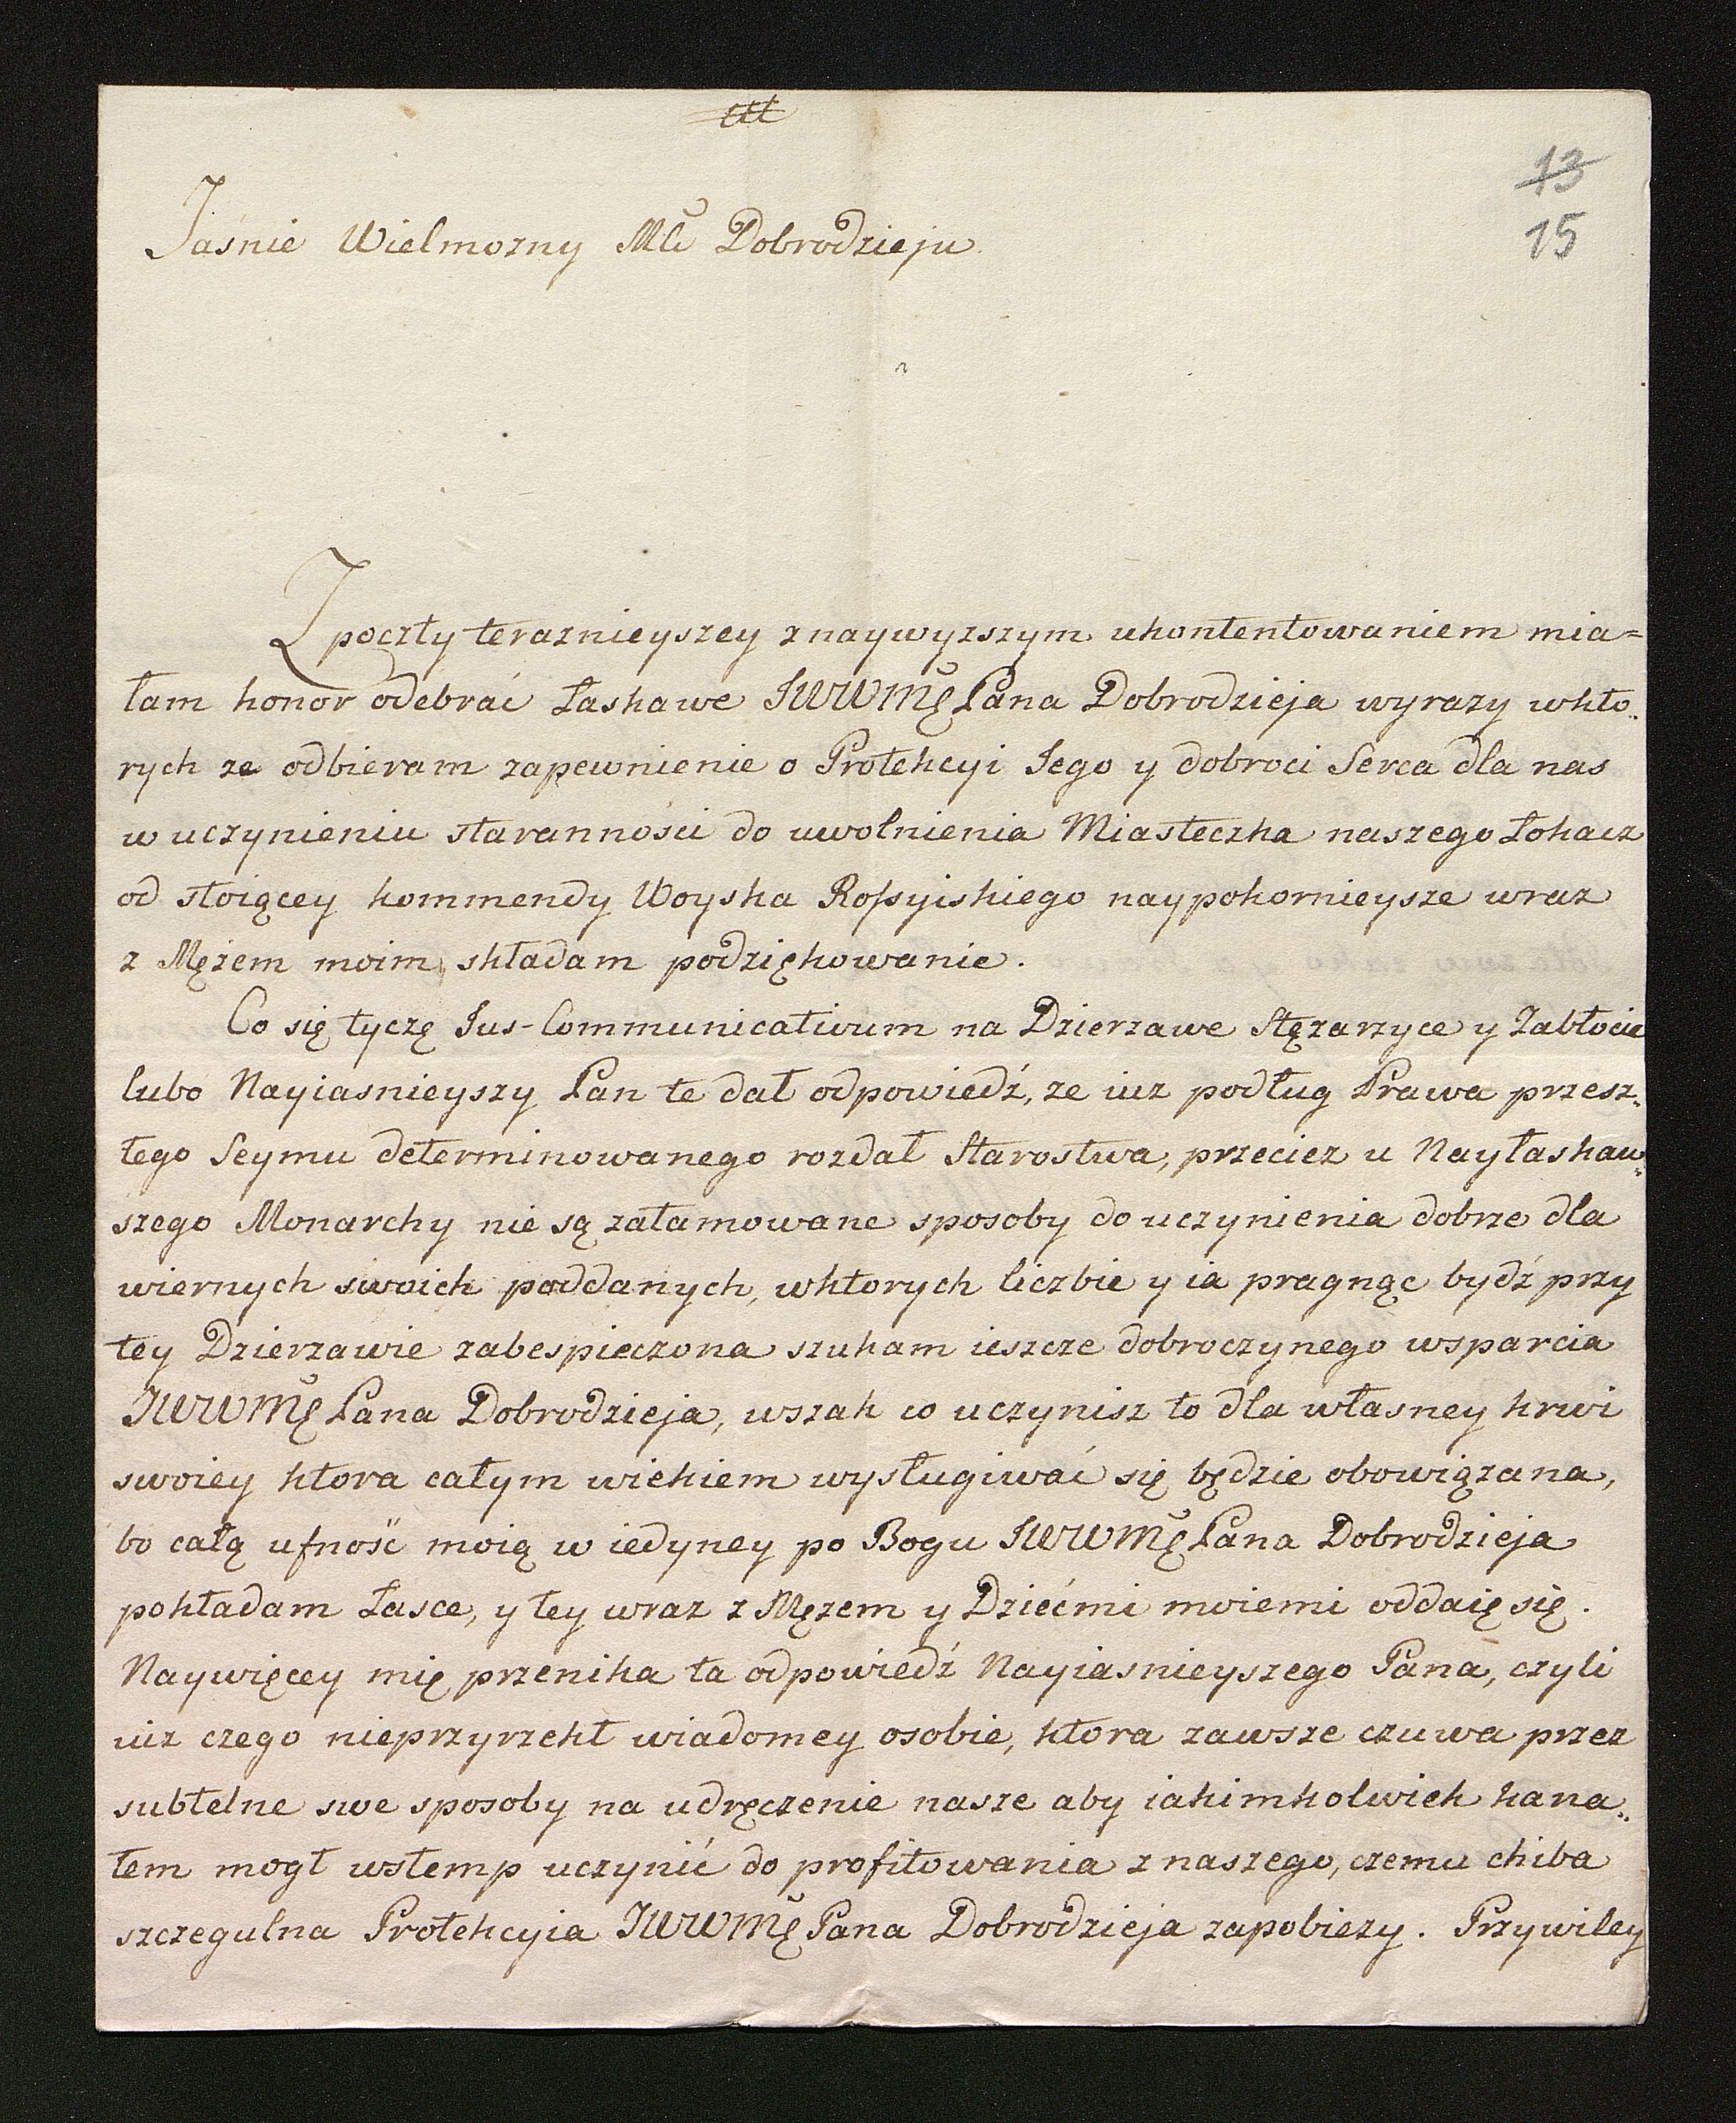 13
15
Jaśnie Wielmozny Mci Dobrodzieju
Z poczty teraznieyszey z naywyzszym ukontentowaniem mia=
łam honor odebrać Łaskawe JWWMę Pana Dobrodzieja wyrazy w kto„
rych ze odbieram zapewnienie o Protekcyi Jego y dobroci Serca dla nas
w uczynieniu staranności do uwolnienia Miasteczka naszego Łokacz
od stoiącey kommendy Woyska Rossyiskiego naypokornieysze wraz
z Mężem moim składam podziękowanie.
Co się tyczę Jus-Communicativum na Dzierzawe Stęzarzyce y Zabłocie
lubo Nayiasnieyszy Pan te dał odpowiedź, ze iuz podług Prawa przesz„
łego Seymu determinowanego rozdał Starostwa, przeciez u Nayłaskaw„
szego Monarchy nie są załamowane sposoby do uczynienia dobrze dla
wiernych swoich poddanych, w ktorych liczbie y ia pragnąc bydź przy
tey Dzierzawie zabespieczona szukam ieszcze dobroczynego wsparcia
JWWMę Pana Dobrodzieja, wszak co uczynisz to dla własney krwi
swoiey ktora całym wiekiem wysługiwać się będzie obowiązana,
bo całą ufność moią w iedyney po Bogu JWWMę Pana Dobrodzieja
pokładam Łasce, y tey wraz z Męzem y Dziećmi moiemi oddaię się.
Naywięcey mię przenika ta odpowiedź Nayiasnieyszego Pana, czyli
iuz czego nieprzyrzekł wiadomey osobie, ktora zawsze czuwa przez
subtelne swe sposoby na udręczenie nasze aby iakimkolwiek kana„
łem mogł wstemp uczynić do profitowania z naszego, czemu chiba
szczegulna Protekcyia JWWMę Pana Dobrodzieja zapobiezy. Przywiley